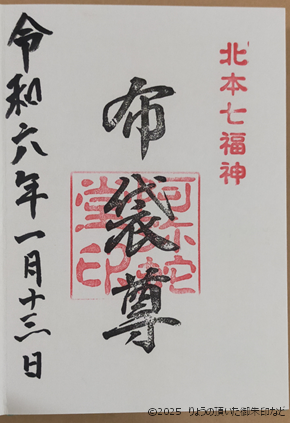 北本七福神
布袋尊
阿弥陀
堂印
令和六年一月十三日
©2025 りょうの頂いた御朱印など